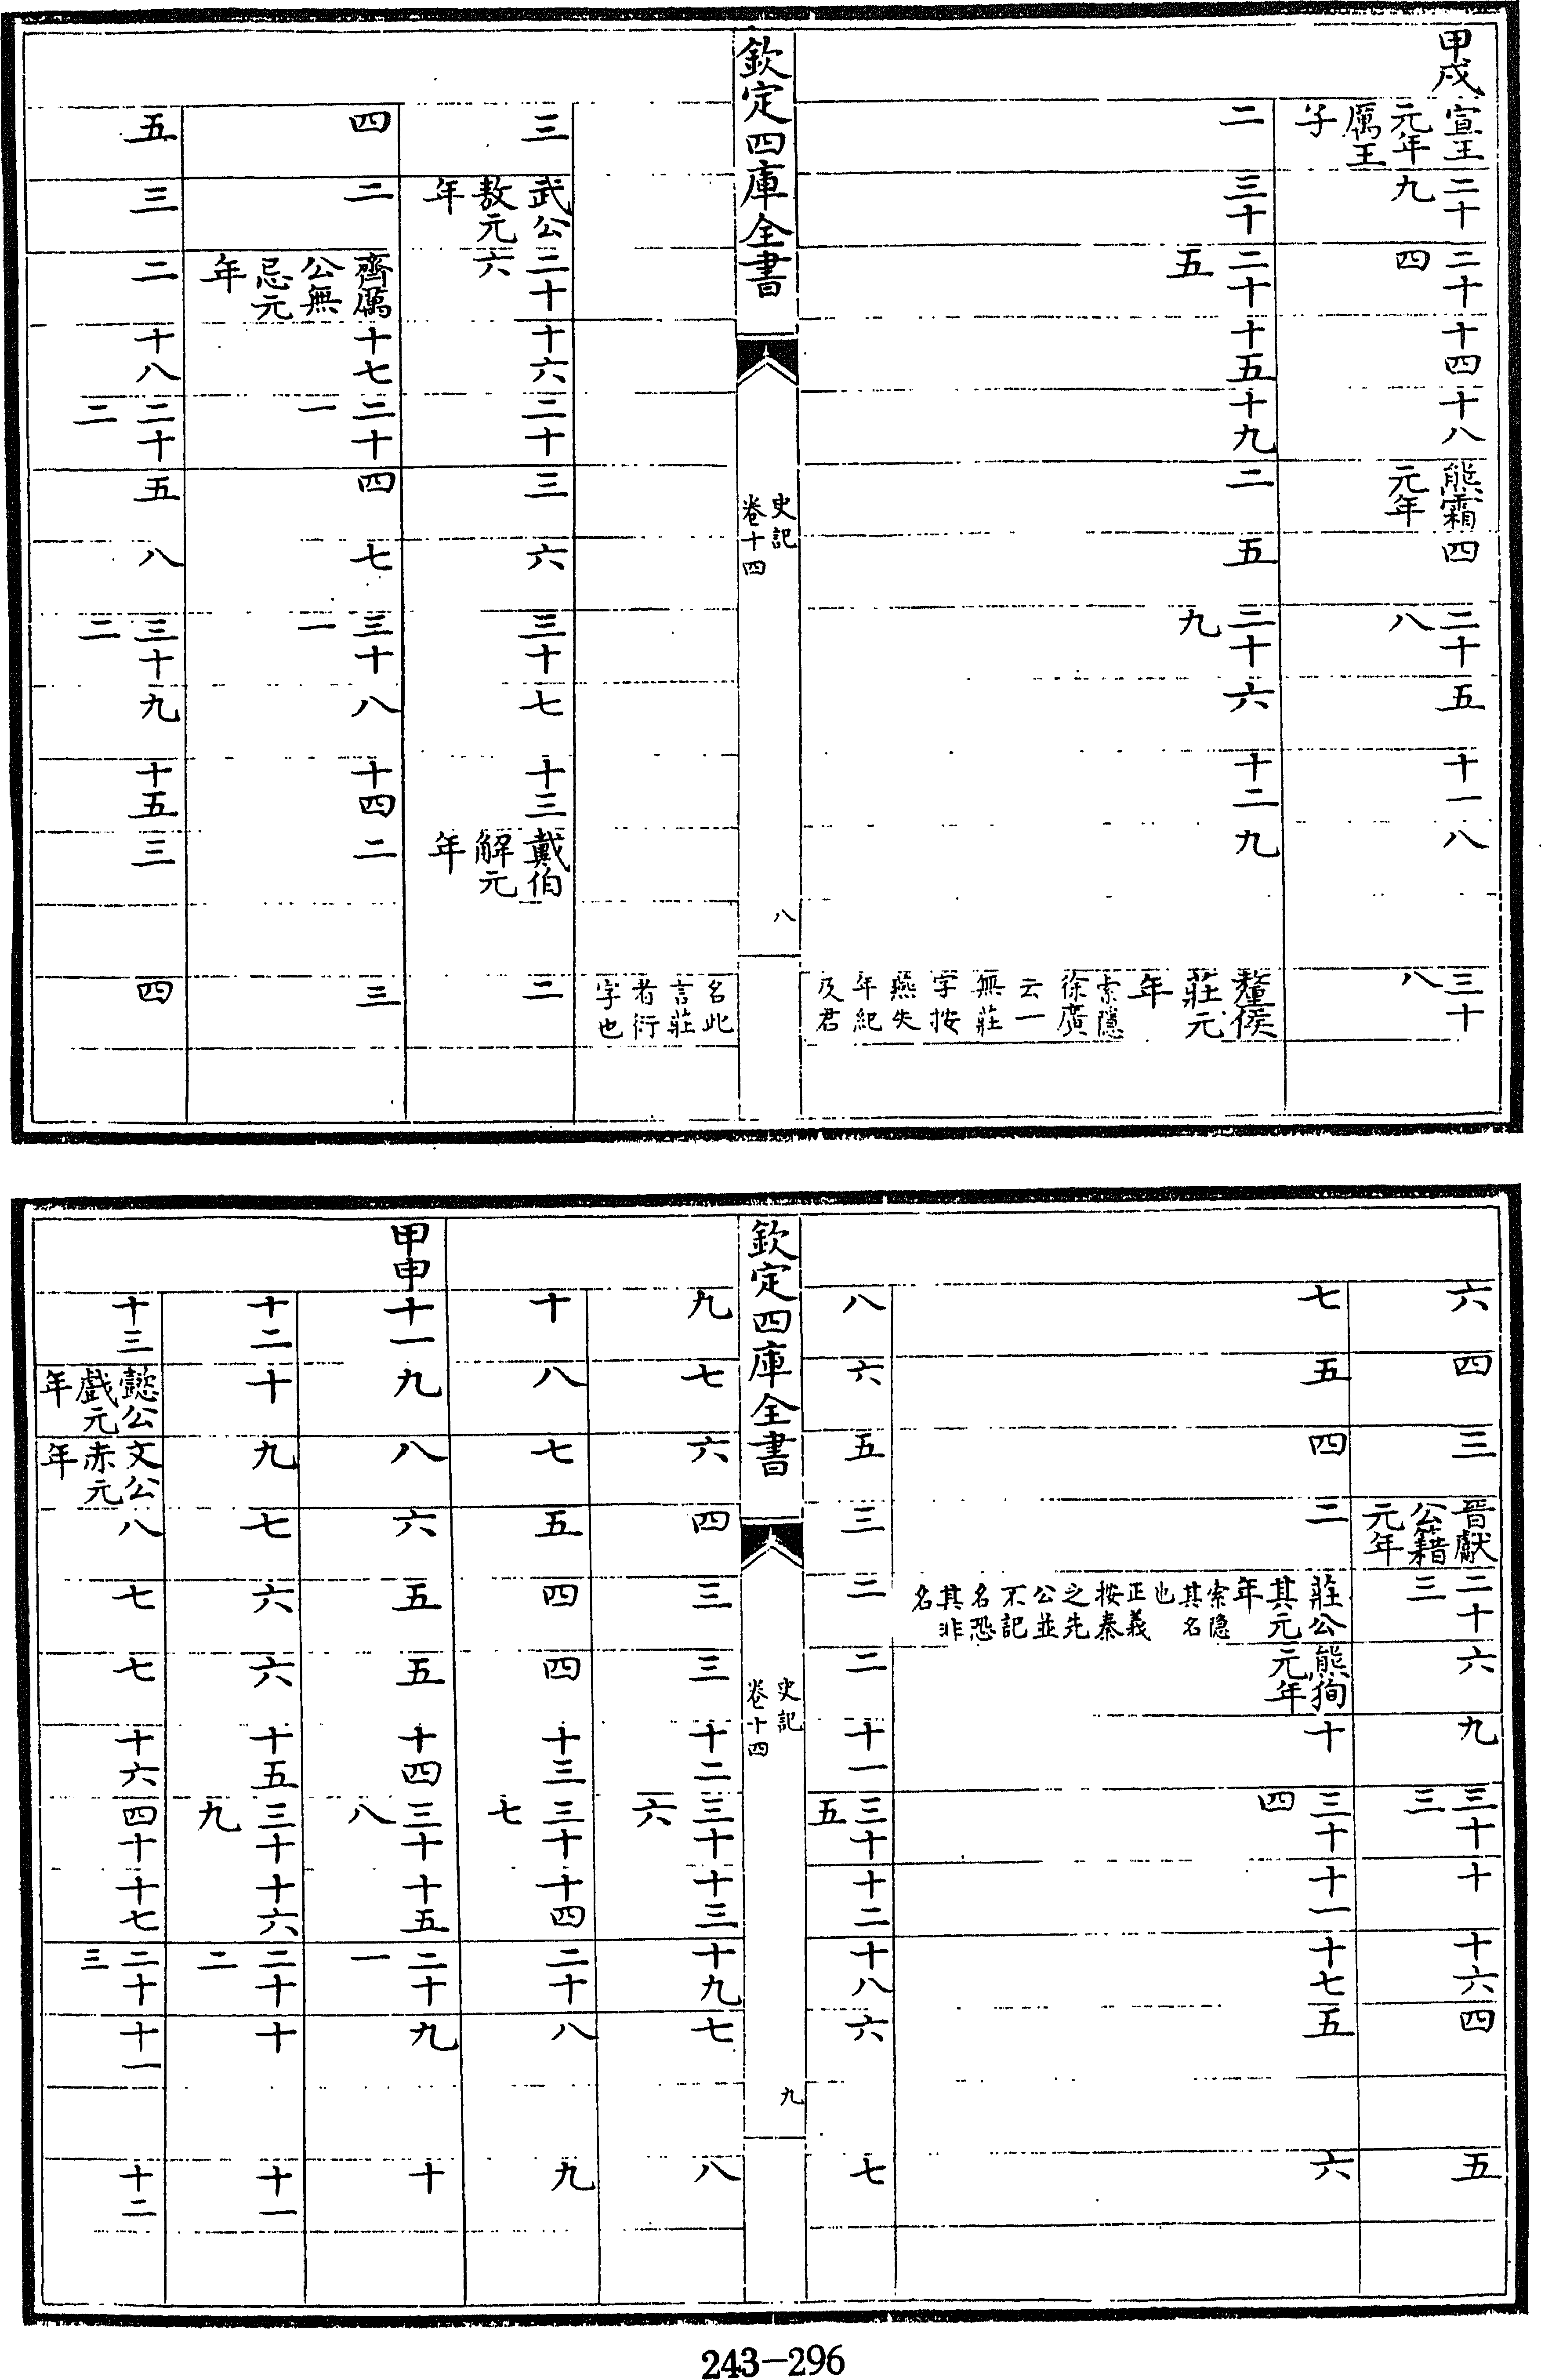 甲戌
宣王元年厲王子 二十九 二十四 十四 十八 熊霜元年 四 二十八 五 十一 八 三十八
二 三十 二十五 十五 十九 二 五 二十九 六 十二 九 釐侯莊元年 索隱徐廣云一無莊字按燕失年紀及君
欽定四庫全書 史記卷十四 八
名此言莊者衍字也
三 武公敖元年 二十六 十六 二十 三 六 三十 七 十三 戴伯解元年 二
四 二 齊厲公無忌元年 十七 二十一 四 七 三十一 八 十四 二 三
五 三 二 十八 二十二 五 八 三十二 九 十五 三 四
六 四 三 晉獻公籍元年 二十三 六 九 三十三 十 十六 四 五
七 五 四 二 莊公其元年 索隱其名也 正義按秦之先公並不記名恐其非名 熊徇元年 十 三十四 十一 十七 五 六
八 六 五 三 二 二 十一 三十五 十二 十八 六 七
欽定四庫全書 史記卷十四 九
九 七 六 四 三 三 十二 三十六 十三 十九 七 八
十 八 七 五 四 四 十三 三十七 十四 二十 八 九
甲申
十一 九 八 六 五 五 十四 三十八 十五 二十一 九 十
十二 十 九 七 六 六 十五 三十九 十六 二十二 十 十一
十三 懿公戲元年 文公赤元年 八 七 七 十六 四十 十七 二十三 十一 十二
243-296